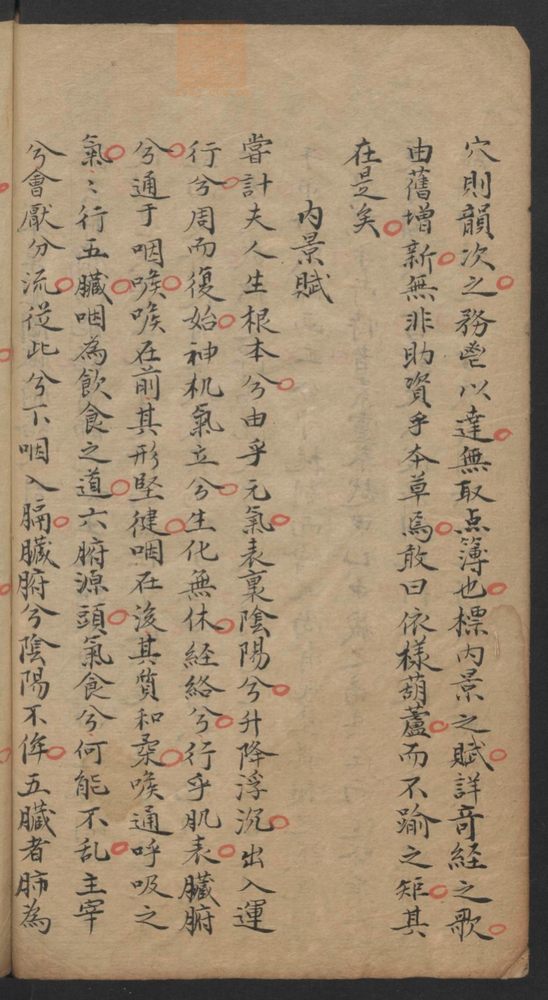 穴則韻次之務鬯以達無取点簿也標内景之賦詳竒経之歌
由舊增新無非助資乎本草焉敢曰依樣葫蘆而不踰之矩其
在是矣
内景賦
嘗計夫人生根本兮由乎元氣表裏陰陽兮升降浮沉出入運
行兮周而復始神机氣立兮生化無休経絡兮行乎肌表臟腑
兮通于咽喉喉在前其形堅健咽在後其質和柔喉通呼吸之
氣〻行五臟咽為飲食之道六腑源頭氣食兮何能不乱主宰
兮會厭分流從此兮下咽入膈臟腑兮陰陽不侔五臟者肺為